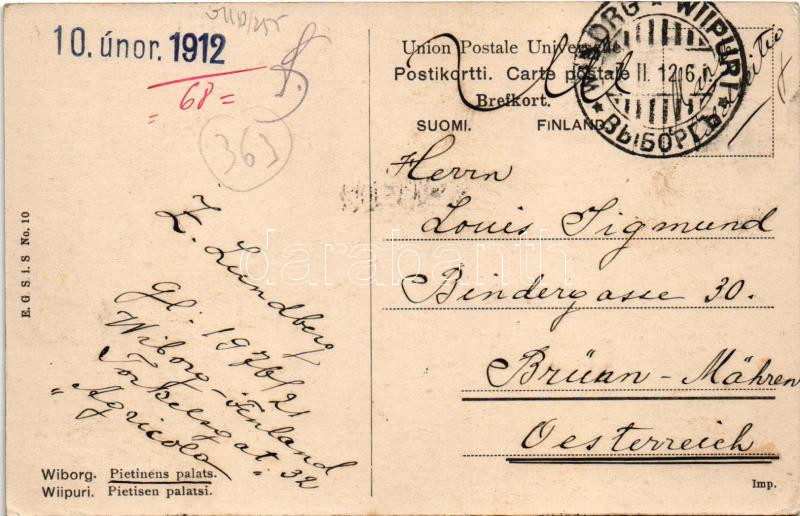 10. únor. 1912
= 68 =
363
Union Postale Universelle
Postikortti. Carte postale
Brefkort.
SUOMI. FINLAND.
WIBORG ★ WIIPURI
II. 12
★ ВЫБОРГЪ ★
Herrn
Louis Sigmund
Bindergasse 30.
Brüan - Mähren
Oesterreich
E. Lundberg
gl. 1976/21
Wiborg - Finland
Torkelsgat. 32
"Agricola"
E. G. S. i. S No. 10
Wiborg. Pietinens palats.
Wiipuri. Pietisen palatsi.
Imp.
darabanth